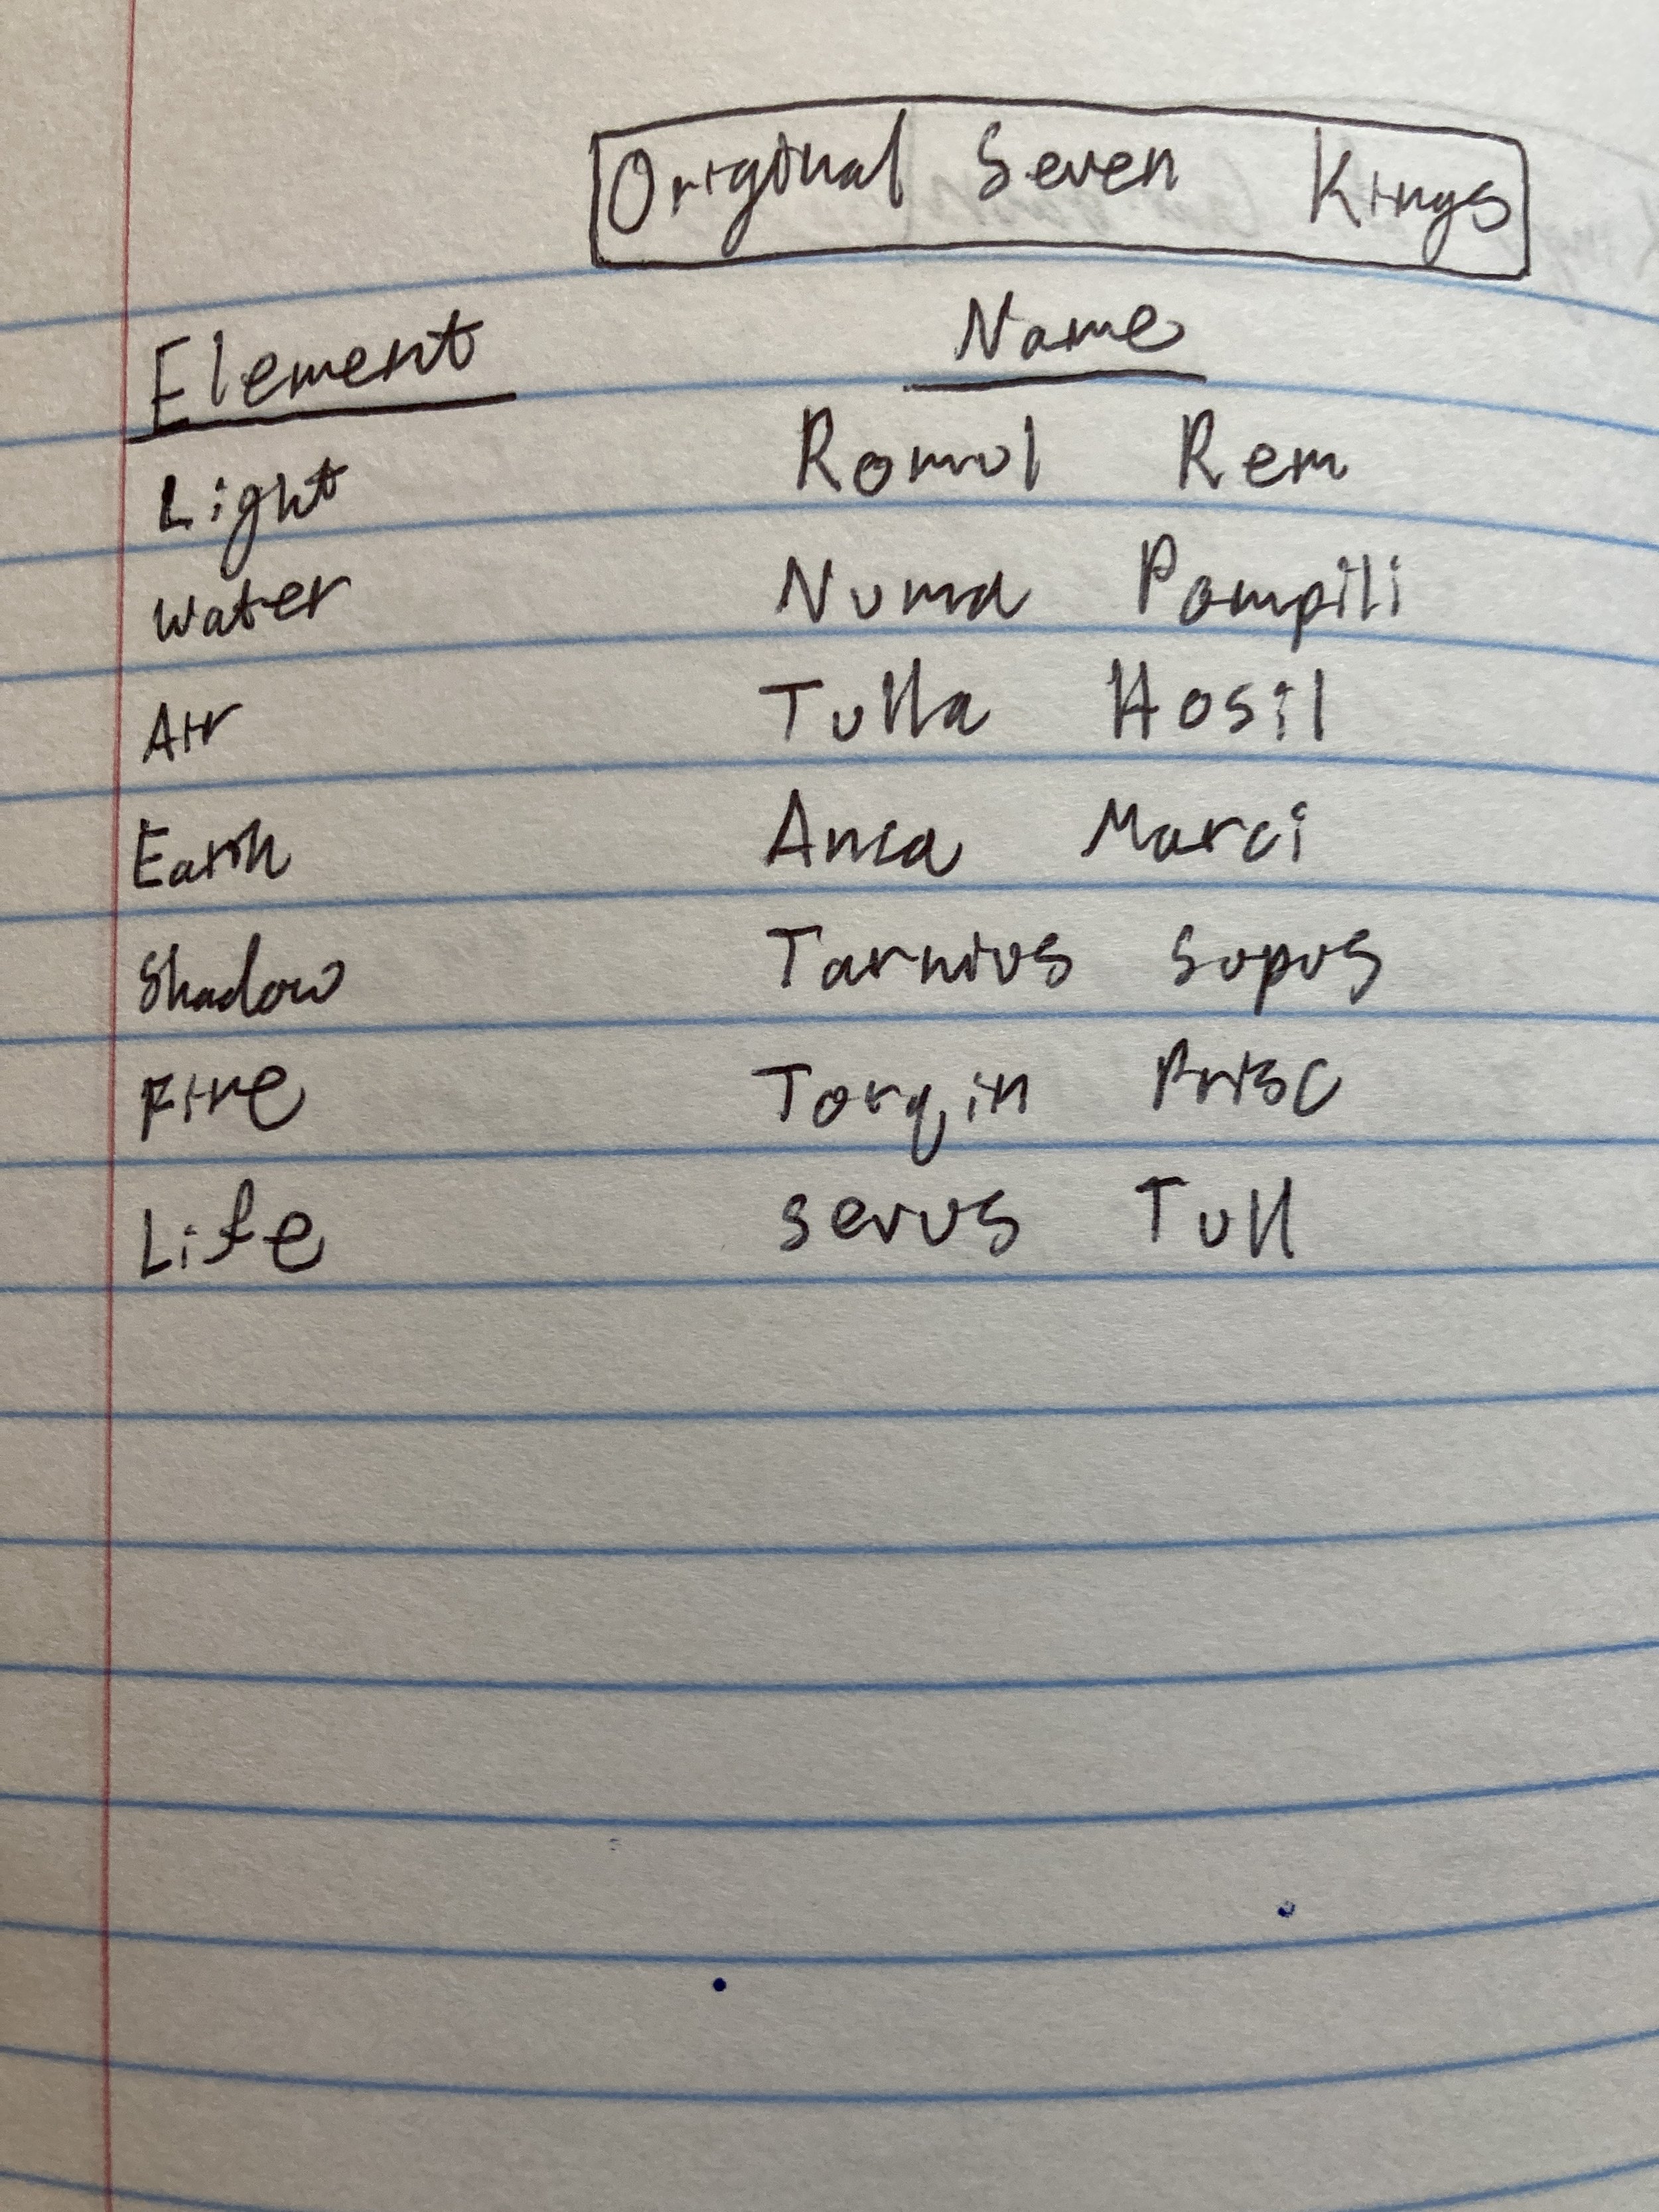 Original Seven Kings
Element Name
Light Romul Rem
Water Numa Pompili
Air Tulla Hosil
Earth Anca Marci
Shadow Tarnius Supus
Fire Torqin Prisc
Life Servus Tull